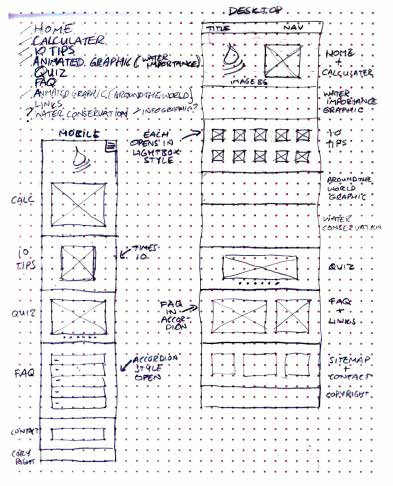 DESKTOP
HOME
CALCULATER
10 TIPS
ANIMATED GRAPHIC (WATER IMPORTANCE)
QUIZ
FAQ
ANIMATED GRAPHIC (AROUND THE WORLD)
LINKS
? WATER CONSERVATION > INFOGRAPHIC?
MOBILE
CALC
10
TIPS
TIMES
10
QUIZ
FAQ
ACCORDION
STYLE
OPEN
CONTACT
COPY
RIGHT
EACH
OPENS IN
LIGHTBOX
STYLE
FAQ
IN
ACCOR-
DION
TITLE
NAV
IMAGE BG
HOME
+
CALCULATER
WATER
IMPORTANCE
GRAPHIC
10
TIPS
AROUND THE
WORLD
GRAPHIC
WATER
CONSERVATION
QUIZ
FAQ
+
LINKS
SITEMAP
+
CONTACT
COPYRIGHT